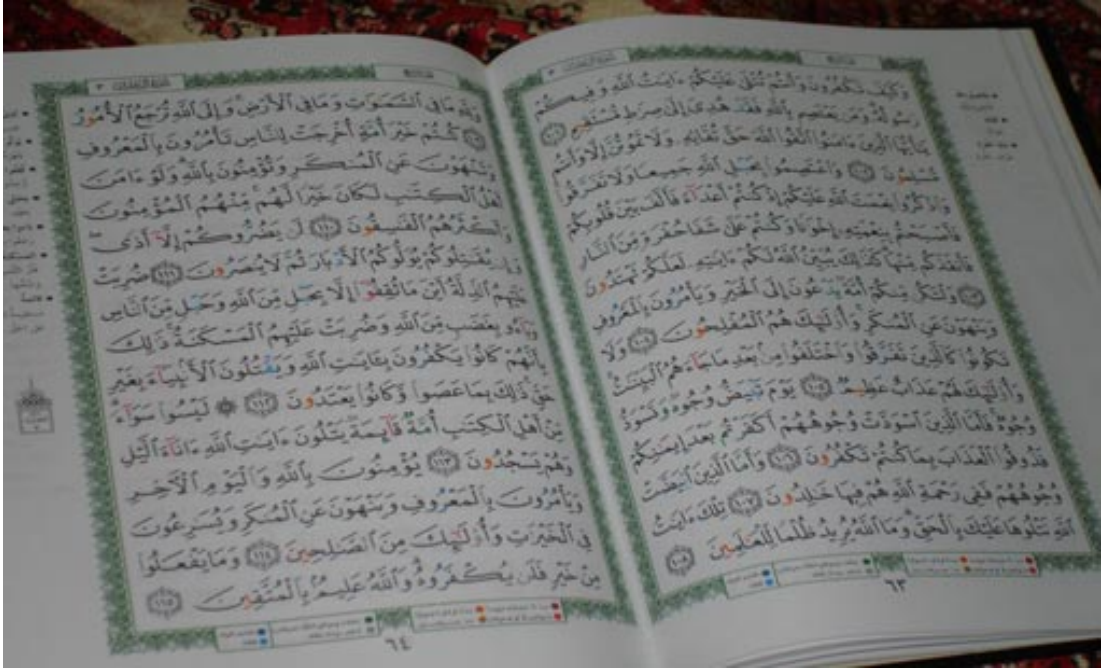 وَكَيْفَ تَكْفُرُونَ وَأَنتُمْ تُتْلَىٰ عَلَيْكُمْ ءَايَٰتُ ٱللَّهِ وَفِيكُمْ
رَسُولُهُۥ وَمَن يَعْتَصِم بِٱللَّهِ فَقَدْ هُدِىَ إِلَىٰ صِرَٰطٍ مُّسْتَقِيمٍ ١٠١
يَٰٓأَيُّهَا ٱلَّذِينَ ءَامَنُوا۟ ٱتَّقُوا۟ ٱللَّهَ حَقَّ تُقَاتِهِۦ وَلَا تَمُوتُنَّ إِلَّا وَأَنتُم
مُّسْلِمُونَ ١٠٢ وَٱعْتَصِمُوا۟ بِحَبْلِ ٱللَّهِ جَمِيعًا وَلَا تَفَرَّقُوا۟
وَٱذْكُرُوا۟ نِعْمَتَ ٱللَّهِ عَلَيْكُمْ إِذْ كُنتُمْ أَعْدَآءً فَأَلَّفَ بَيْنَ قُلُوبِكُمْ
فَأَصْبَحْتُم بِنِعْمَتِهِۦٓ إِخْوَٰنًا وَكُنتُمْ عَلَىٰ شَفَا حُفْرَةٍ مِّنَ ٱلنَّارِ
فَأَنقَذَكُم مِّنْهَا كَذَٰلِكَ يُبَيِّنُ ٱللَّهُ لَكُمْ ءَايَٰتِهِۦ لَعَلَّكُمْ تَهْتَدُونَ
١٠٣ وَلْتَكُن مِّنكُمْ أُمَّةٌ يَدْعُونَ إِلَى ٱلْخَيْرِ وَيَأْمُرُونَ بِٱلْمَعْرُوفِ
وَيَنْهَوْنَ عَنِ ٱلْمُنكَرِ وَأُو۟لَٰٓئِكَ هُمُ ٱلْمُفْلِحُونَ ١٠٤ وَلَا
تَكُونُوا۟ كَٱلَّذِينَ تَفَرَّقُوا۟ وَٱخْتَلَفُوا۟ مِنۢ بَعْدِ مَا جَآءَهُمُ ٱلْبَيِّنَٰتُ
وَأُو۟لَٰٓئِكَ لَهُمْ عَذَابٌ عَظِيمٌ ١٠٥ يَوْمَ تَبْيَضُّ وُجُوهٌ وَتَسْوَدُّ
وُجُوهٌ فَأَمَّا ٱلَّذِينَ ٱسْوَدَّتْ وُجُوهُهُمْ أَكَفَرْتُم بَعْدَ إِيمَٰنِكُمْ
فَذُوقُوا۟ ٱلْعَذَابَ بِمَا كُنتُمْ تَكْفُرُونَ ١٠٦ وَأَمَّا ٱلَّذِينَ ٱبْيَضَّتْ
وُجُوهُهُمْ فَفِى رَحْمَةِ ٱللَّهِ هُمْ فِيهَا خَٰلِدُونَ ١٠٧ تِلْكَ ءَايَٰتُ
ٱللَّهِ نَتْلُوهَا عَلَيْكَ بِٱلْحَقِّ وَمَا ٱللَّهُ يُرِيدُ ظُلْمًا لِّلْعَٰلَمِينَ ١٠٨
٦٣
وَلِلَّهِ مَا فِى ٱلسَّمَٰوَٰتِ وَمَا فِى ٱلْأَرْضِ وَإِلَى ٱللَّهِ تُرْجَعُ ٱلْأُمُورُ
١٠٩ كُنتُمْ خَيْرَ أُمَّةٍ أُخْرِجَتْ لِلنَّاسِ تَأْمُرُونَ بِٱلْمَعْرُوفِ
وَتَنْهَوْنَ عَنِ ٱلْمُنكَرِ وَتُؤْمِنُونَ بِٱللَّهِ وَلَوْ ءَامَنَ
أَهْلُ ٱلْكِتَٰبِ لَكَانَ خَيْرًا لَّهُم مِّنْهُمُ ٱلْمُؤْمِنُونَ
وَأَكْثَرُهُمُ ٱلْفَٰسِقُونَ ١١٠ لَن يَضُرُّوكُمْ إِلَّآ أَذًى
وَإِن يُقَٰتِلُوكُمْ يُوَلُّوكُمُ ٱلْأَدْبَارَ ثُمَّ لَا يُنصَرُونَ ١١١ ضُرِبَتْ
عَلَيْهِمُ ٱلذِّلَّةُ أَيْنَ مَا ثُقِفُوٓا۟ إِلَّا بِحَبْلٍ مِّنَ ٱللَّهِ وَحَبْلٍ مِّنَ ٱلنَّاسِ
وَبَآءُو بِغَضَبٍ مِّنَ ٱللَّهِ وَضُرِبَتْ عَلَيْهِمُ ٱلْمَسْكَنَةُ ذَٰلِكَ
بِأَنَّهُمْ كَانُوا۟ يَكْفُرُونَ بِـَٔايَٰتِ ٱللَّهِ وَيَقْتُلُونَ ٱلْأَنۢبِيَآءَ بِغَيْرِ
حَقٍّ ذَٰلِكَ بِمَا عَصَوا۟ وَّكَانُوا۟ يَعْتَدُونَ ١١٢ ۞ لَيْسُوا۟ سَوَآءً
مِّنْ أَهْلِ ٱلْكِتَٰبِ أُمَّةٌ قَآئِمَةٌ يَتْلُونَ ءَايَٰتِ ٱللَّهِ ءَانَآءَ ٱلَّيْلِ
وَهُمْ يَسْجُدُونَ ١١٣ يُؤْمِنُونَ بِٱللَّهِ وَٱلْيَوْمِ ٱلْءَاخِرِ
وَيَأْمُرُونَ بِٱلْمَعْرُوفِ وَيَنْهَوْنَ عَنِ ٱلْمُنكَرِ وَيُسَٰرِعُونَ
فِى ٱلْخَيْرَٰتِ وَأُو۟لَٰٓئِكَ مِنَ ٱلصَّٰلِحِينَ ١١٤ وَمَا يَفْعَلُوا۟
مِنْ خَيْرٍ فَلَن يُكْفَرُوهُ وَٱللَّهُ عَلِيمٌۢ بِٱلْمُتَّقِينَ ١١٥
٦٤